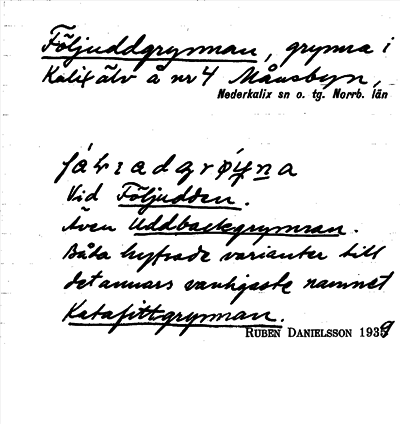 Följuddgrynnan, grynna i
Kalix älv å nr 4 Månsbyn,
Nederkalix sn o. tg. Norrb. län
Vid Följudden.
Även Uddbackgrynnan.
Båda hyfsade varianter till
det annars vanligaste namnet
Katafittgrynnan.
RUBEN DANIELSSON 1939